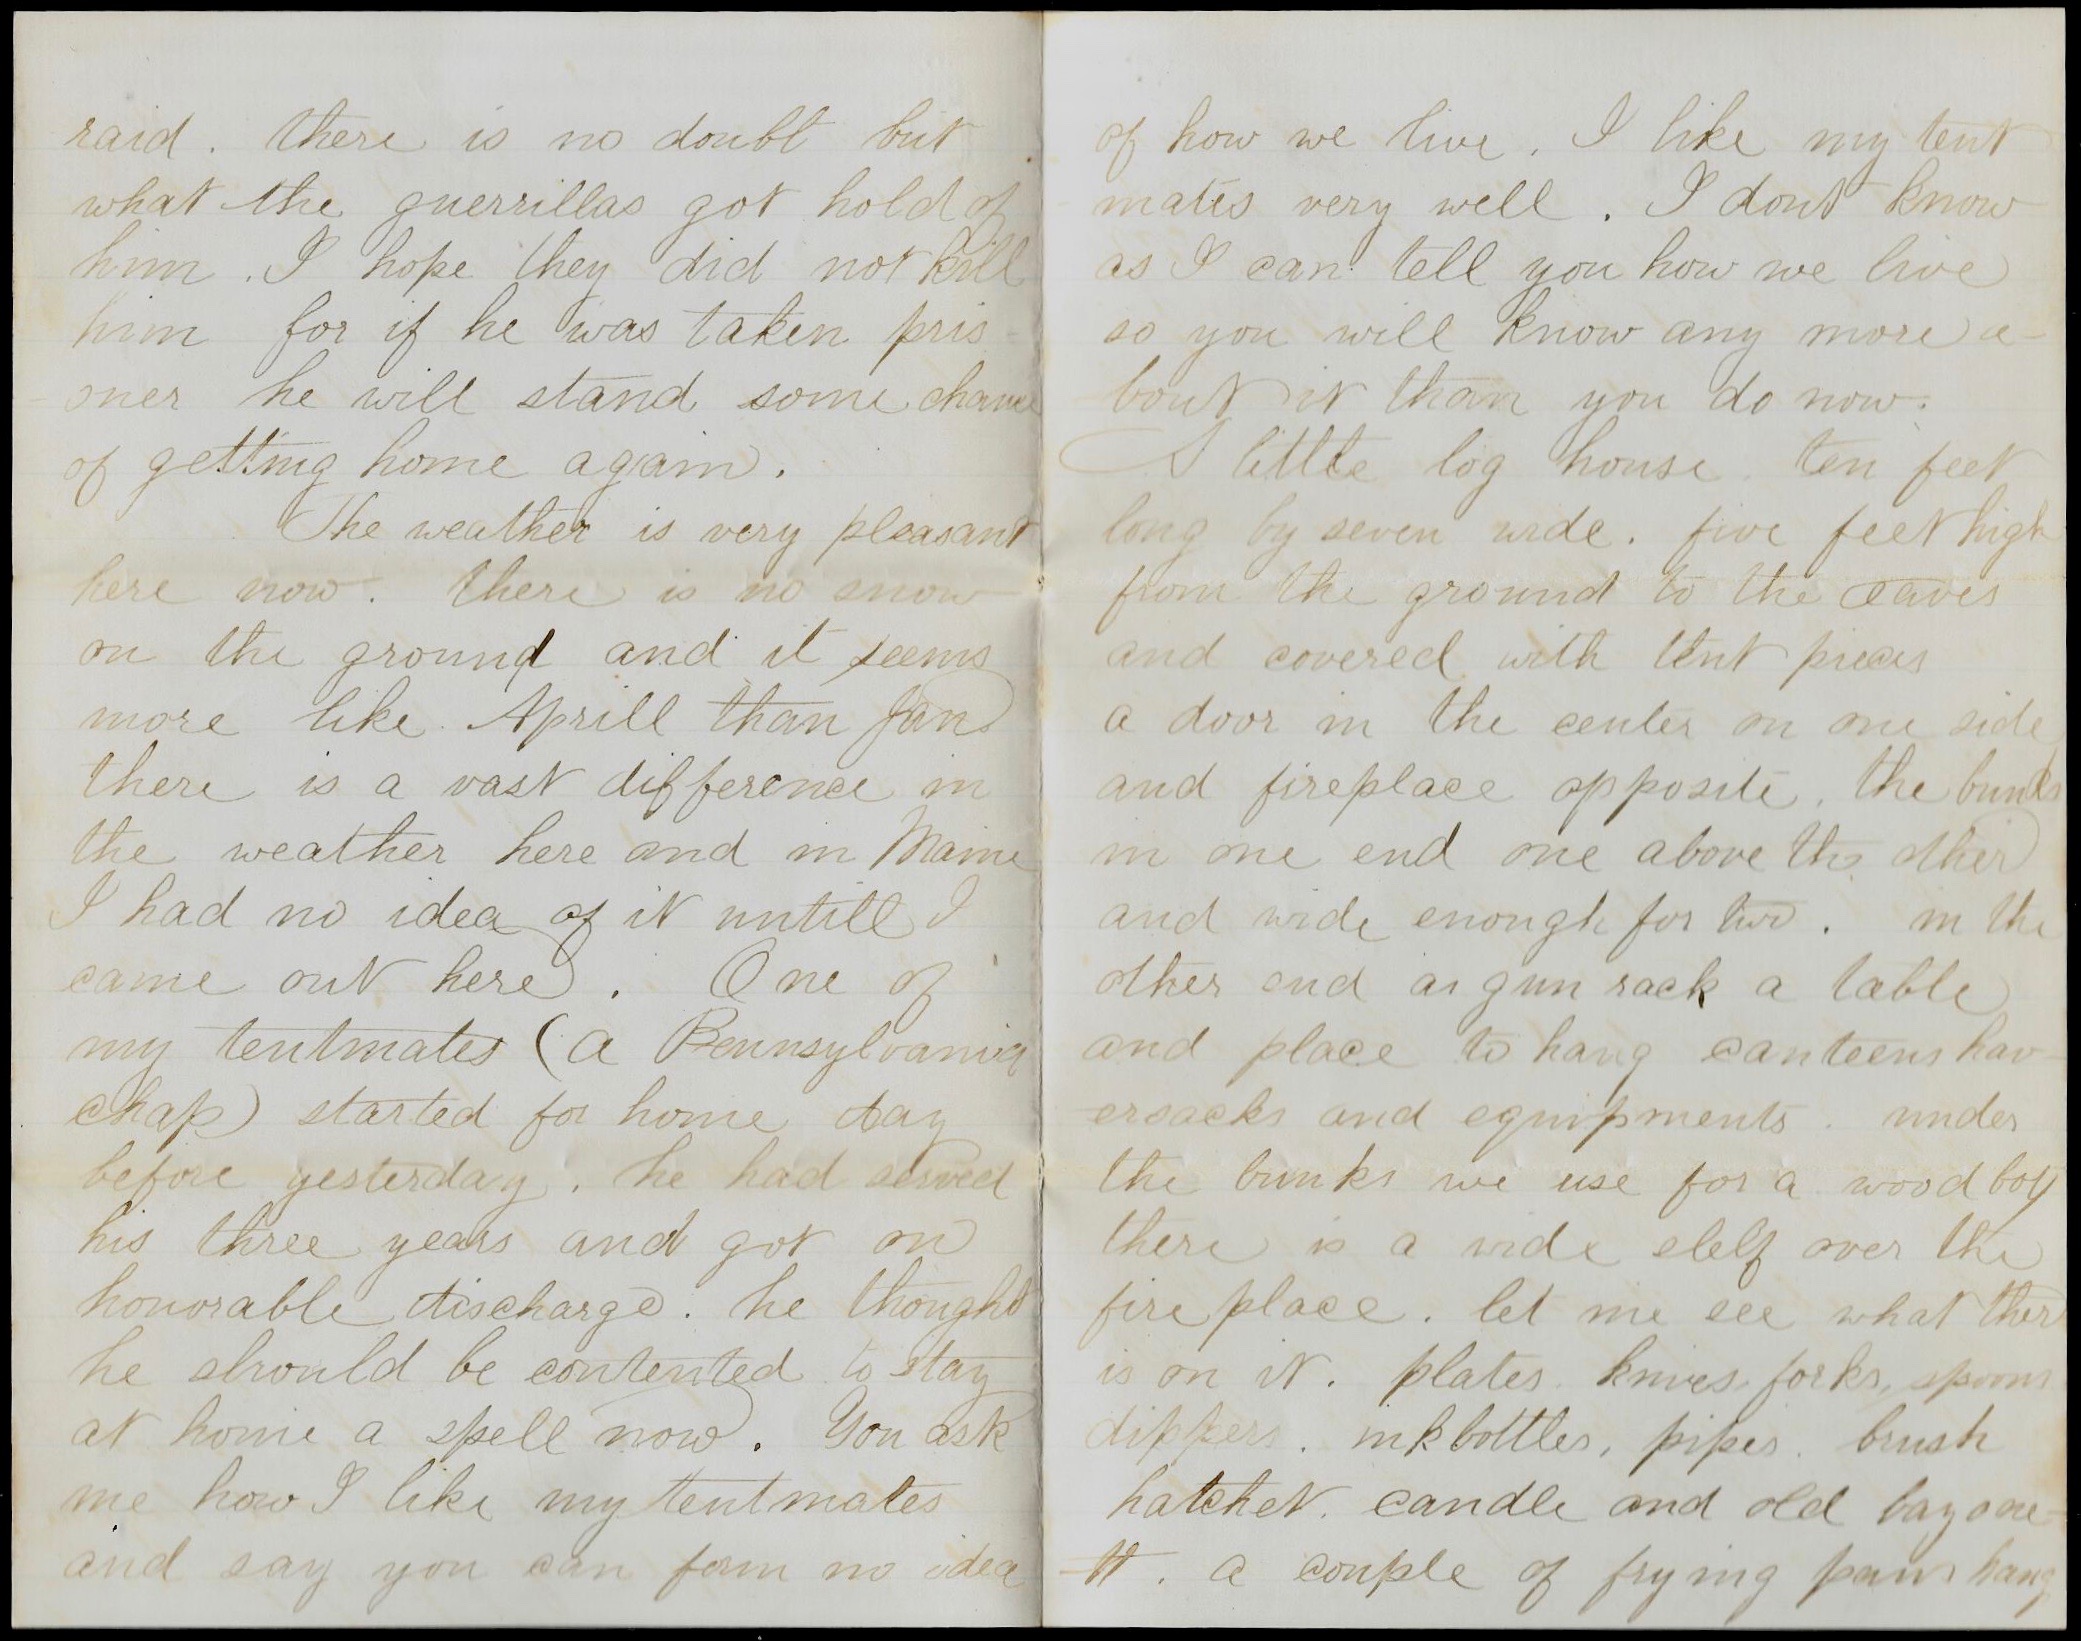 raid. there is no doubt but
what the guerrillas got hold of
him. I hope they did not kill
him for if he was taken pris-
oner he will stand some chance
of getting home again.
The weather is very pleasant
here now. there is no snow
on the ground and it seems
more like Aprill than Jan
there is a vast difference in
the weather here and in Maine
I had no idea of it untill I
came out here. One of
my tentmates (a Pennsylvania
chap) started for home day
before yesterday. he had served
his three years and got an
honorable discharge. he thought
he should be contented to stay
at home a spell now. You ask
me how I like my tentmates
and say you can form no idea
of how we live. I like my tent
mates very well. I dont know
as I can tell you how we live
so you will know any more a-
bout it than you do now.
A little log house ten feet
long by seven wide. five feet high
from the ground to the eaves
and covered with tent pieces
a door in the center on one side
and fireplace opposite. the bunks
in one end one above the other
and wide enough for two. in the
other end a gun rack a table
and place to hang canteens hav-
ersacks and equipments. under
the bunks we use for a wood box
there is a wide slelf over the
fire place. let me see what ther
is on it. plates. knives, forks, spoons
dippers. inkbottles, pipes. brush
hatchet. candle and old bayone-
tt. a couple of frying pans hang